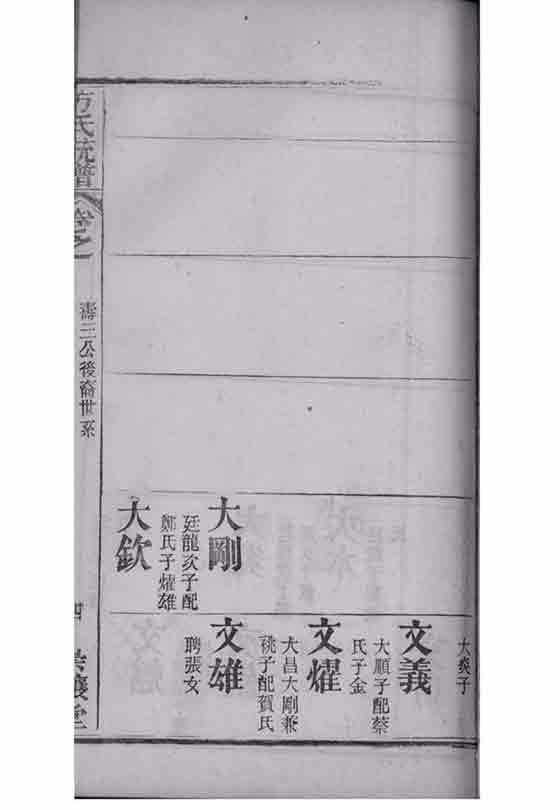 大剛
廷龍次子配
鄭氏子燿雄
大欽
大奕子
文義
大順子配蔡
氏子金
文燿
大昌大剛兼
祧子配賀氏
文雄
聘張女
方氏統譜
卷之一
壽三公後裔世系
四